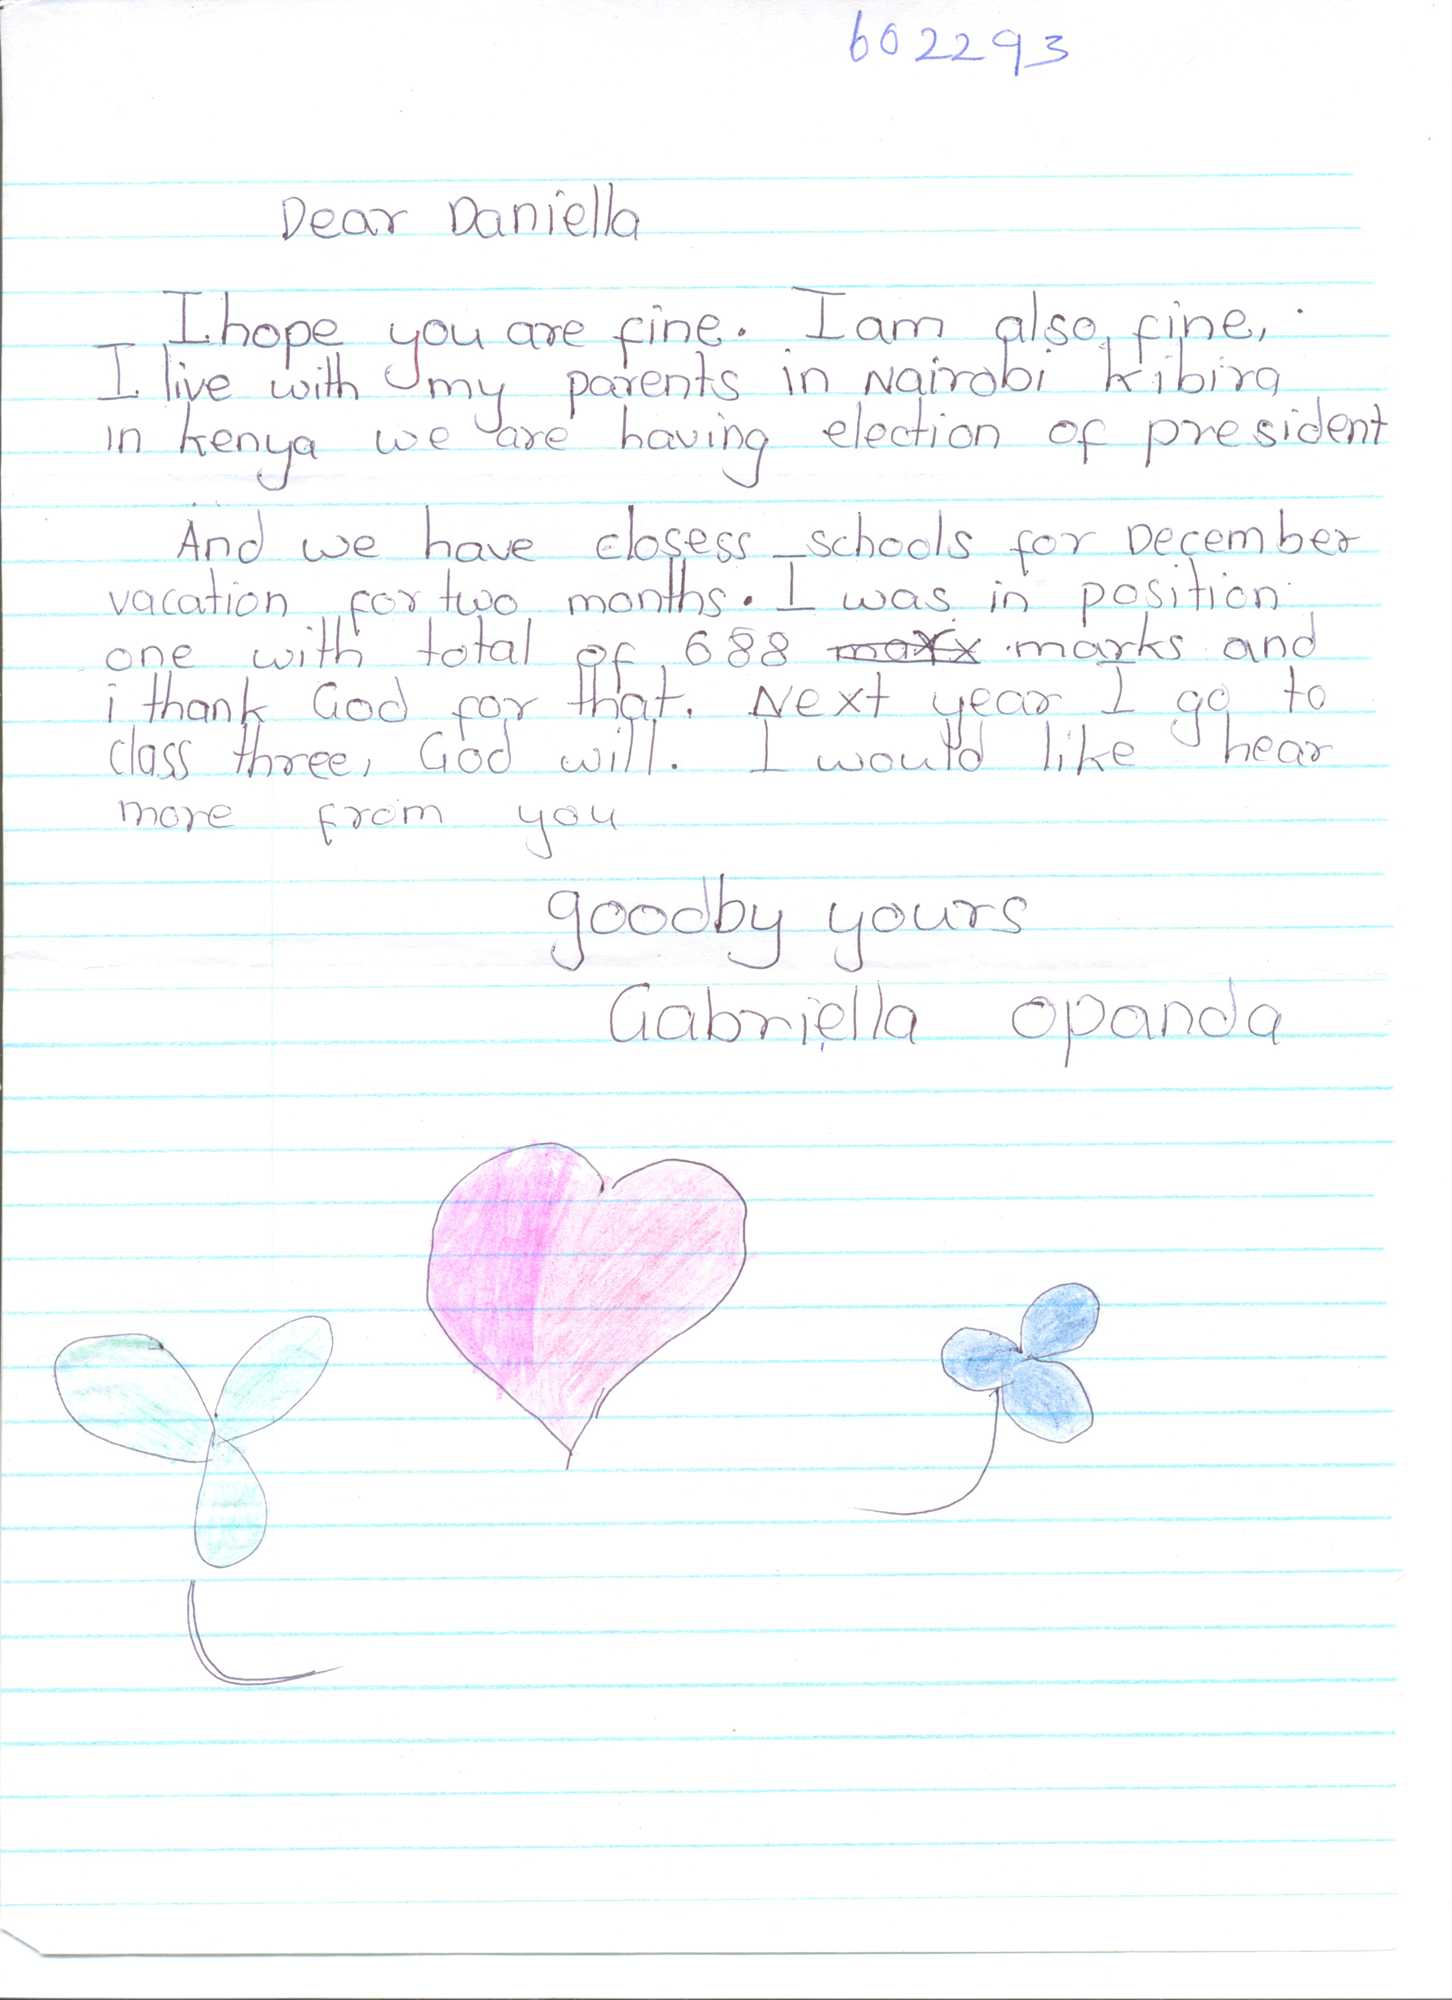 602293
Dear Daniella
I hope you are fine. I am also fine,
I live with my parents in Nairobi kibira
in kenya we are having election of president
And we have closess schools for December
vacation for two months. I was in position
one with total of 688 marks and
i thank God for that. Next year I go to
class three, God will. I would like hear
more from you
goodby yours
Gabriella opanda